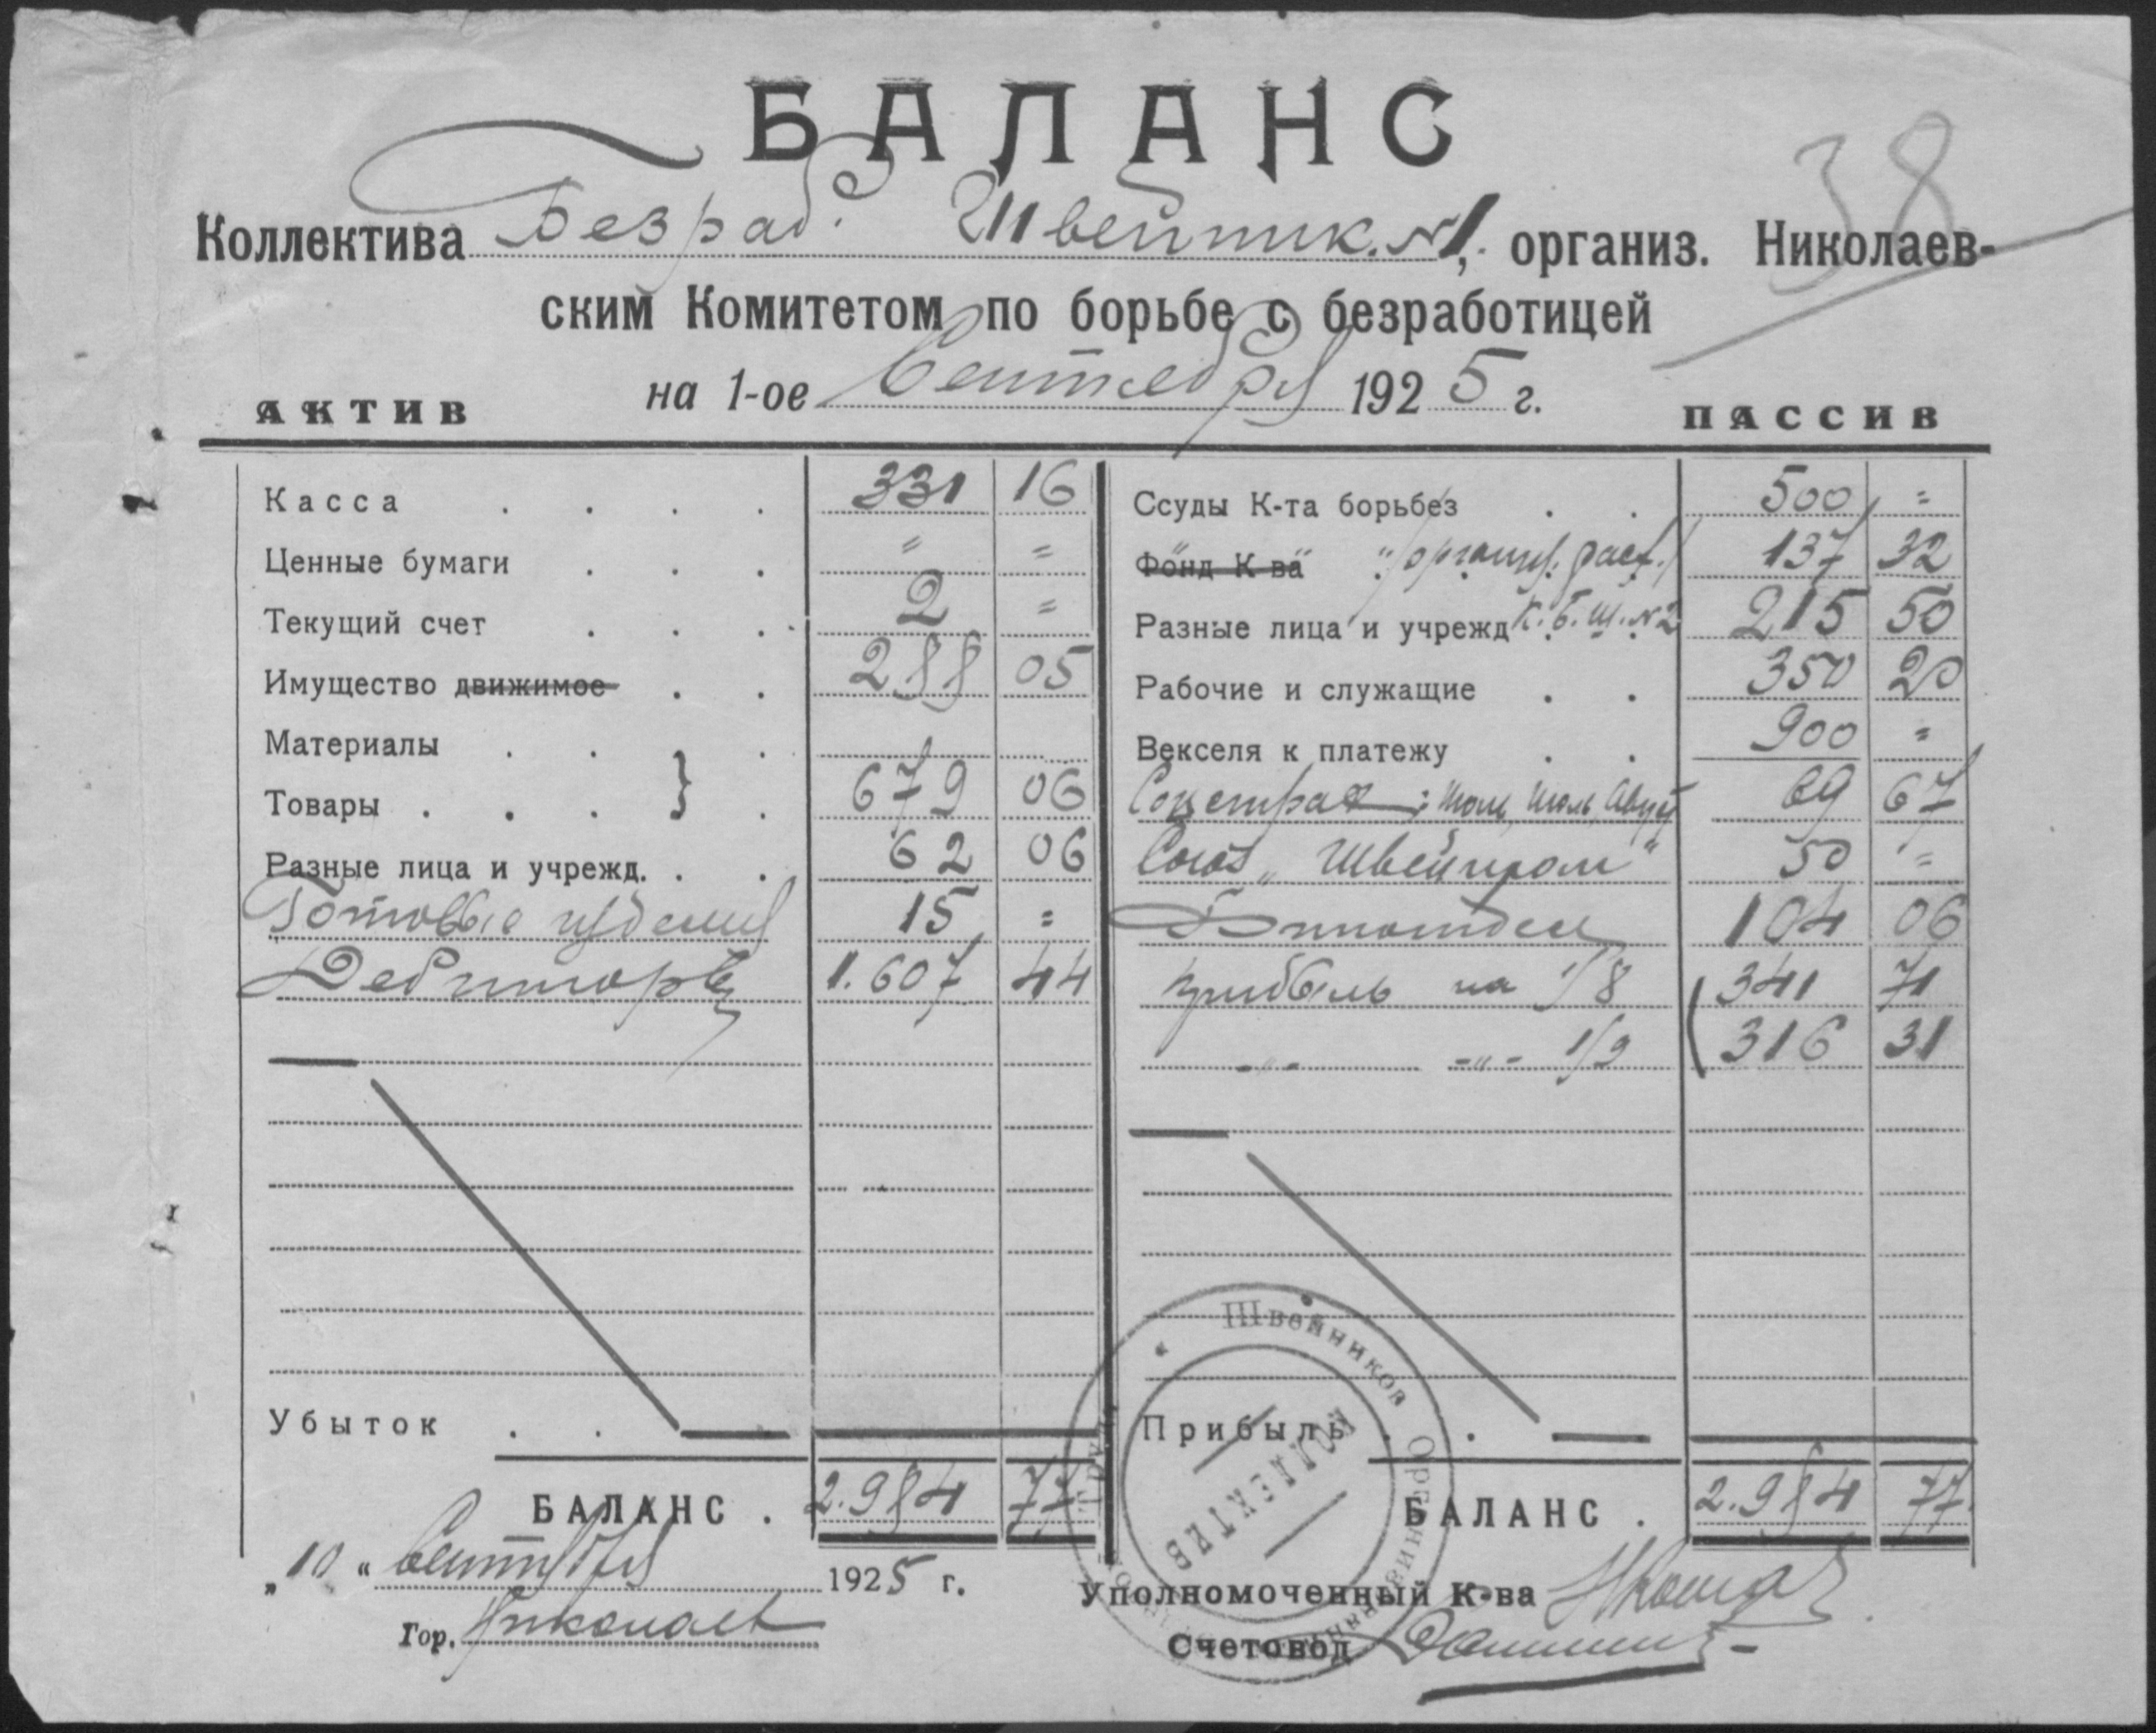 38
БАЛАНС
Коллектива Безраб. Швейник. №1, организ. Николаев-
ским Комитетом по борьбе с безработицей
на 1-ое Сентября 1925 г.
АКТИВ ПАССИВ
Касса . . . . 331 16
Ценные бумаги . . . " =
Текущий счет . . . 2 =
Имущество движимое . . 288 05
Материалы . . .
Товары . . . } . 679 06
Разные лица и учрежд. . . 62 06
Готовые изделия 15 =
Дебиторы 1.607 44
Убыток . .
БАЛАНС . 2.984 77
Ссуды К-та борьбез . . 500 =
Фонд К-ва " /организ. расх./ 137 32
Разные лица и учрежд К.Б.Ш.№2 215 50
Рабочие и служащие . . 350 20
Векселя к платежу . . 900 =
Соцстрах: Июнь, Июль, Авгус 69 67
Союз „Швейпром" 50 =
104 06
Прибыль на 1/8 341 71
-"- -"- 1/9 316 31
Прибыль . .
БАЛАНС . 2.984 77
„10" Сентября 1925 г.
Гор. Николаев
Уполномоченный К-ва
Счетовод
Швейников Организован
КОЛЛЕКТИВ